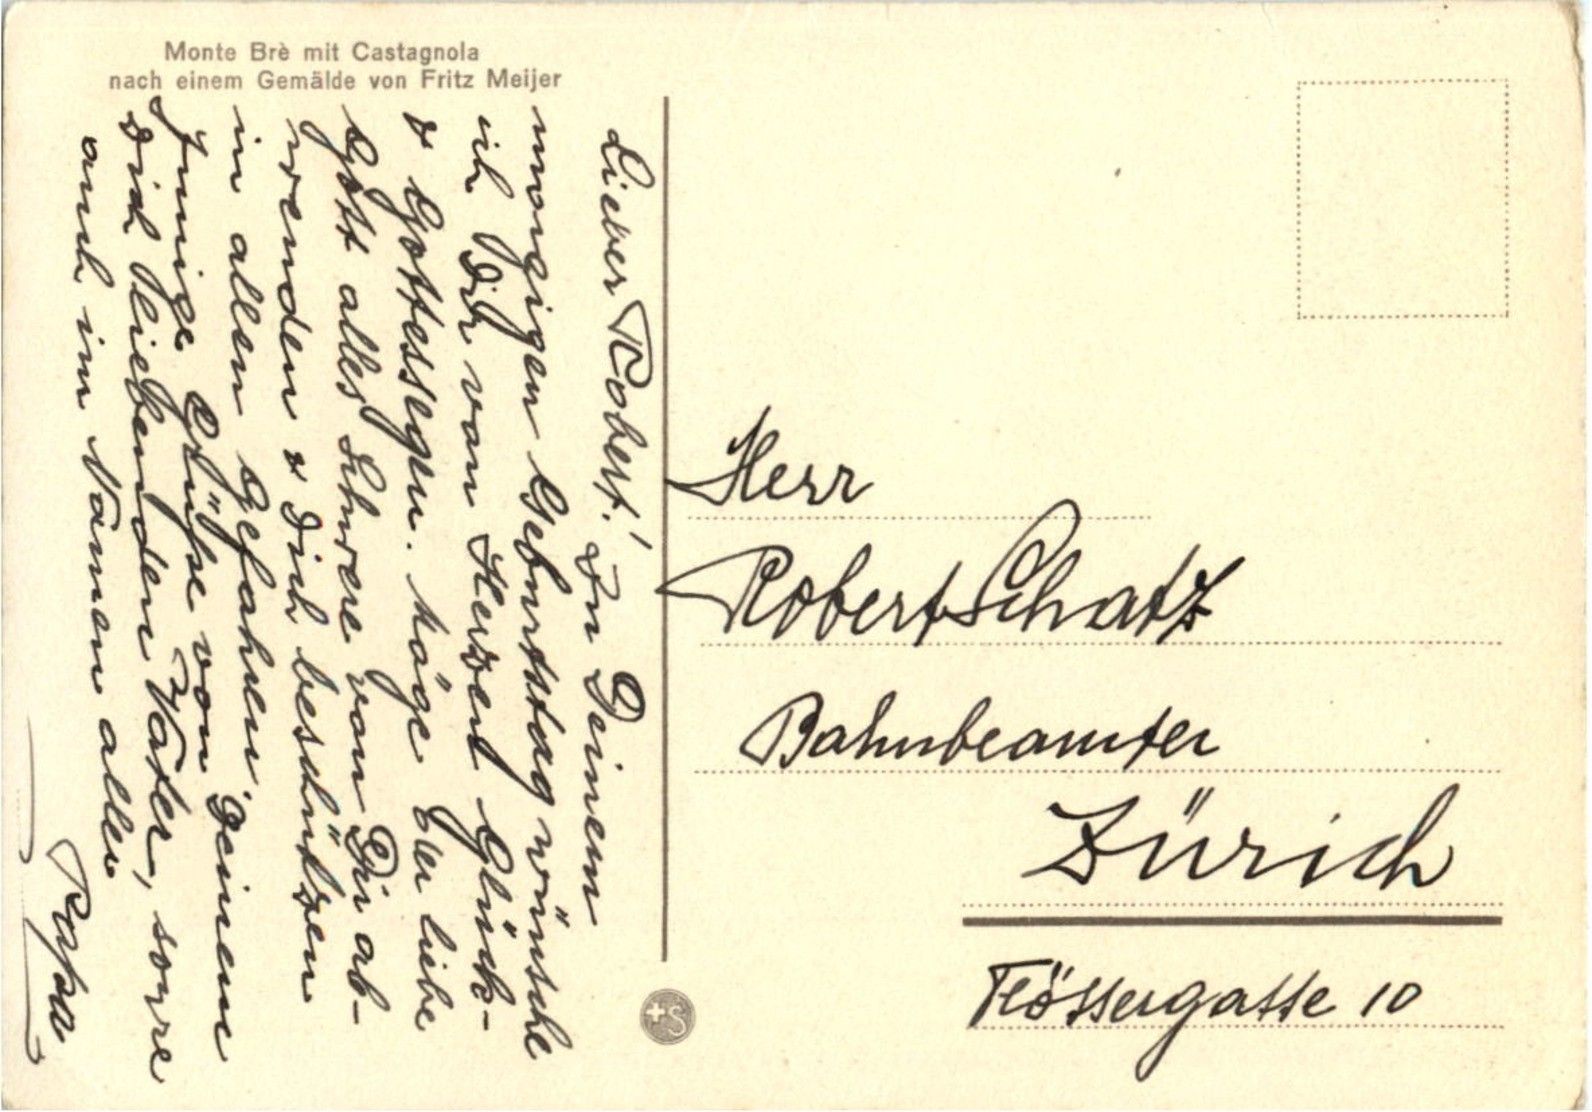 Monte Brè mit Castagnola
nach einem Gemälde von Fritz Meijer
Lieber Robert! Zu Deinem
morgigen Geburtstag wünsche
ich Dir von Herzen Glück-
& Gottessegen. Möge der liebe
Gott alles Schwere von Dir ab-
wenden & Dich beschützen
in allen Gefahren.
Innige Grüße von Deinem
Dich liebenden Vater, sowie
auch im Namen aller
Papa
Herr
Robert Schatz
Bahnbeamter
Zürich
Flössergasse 10
+S